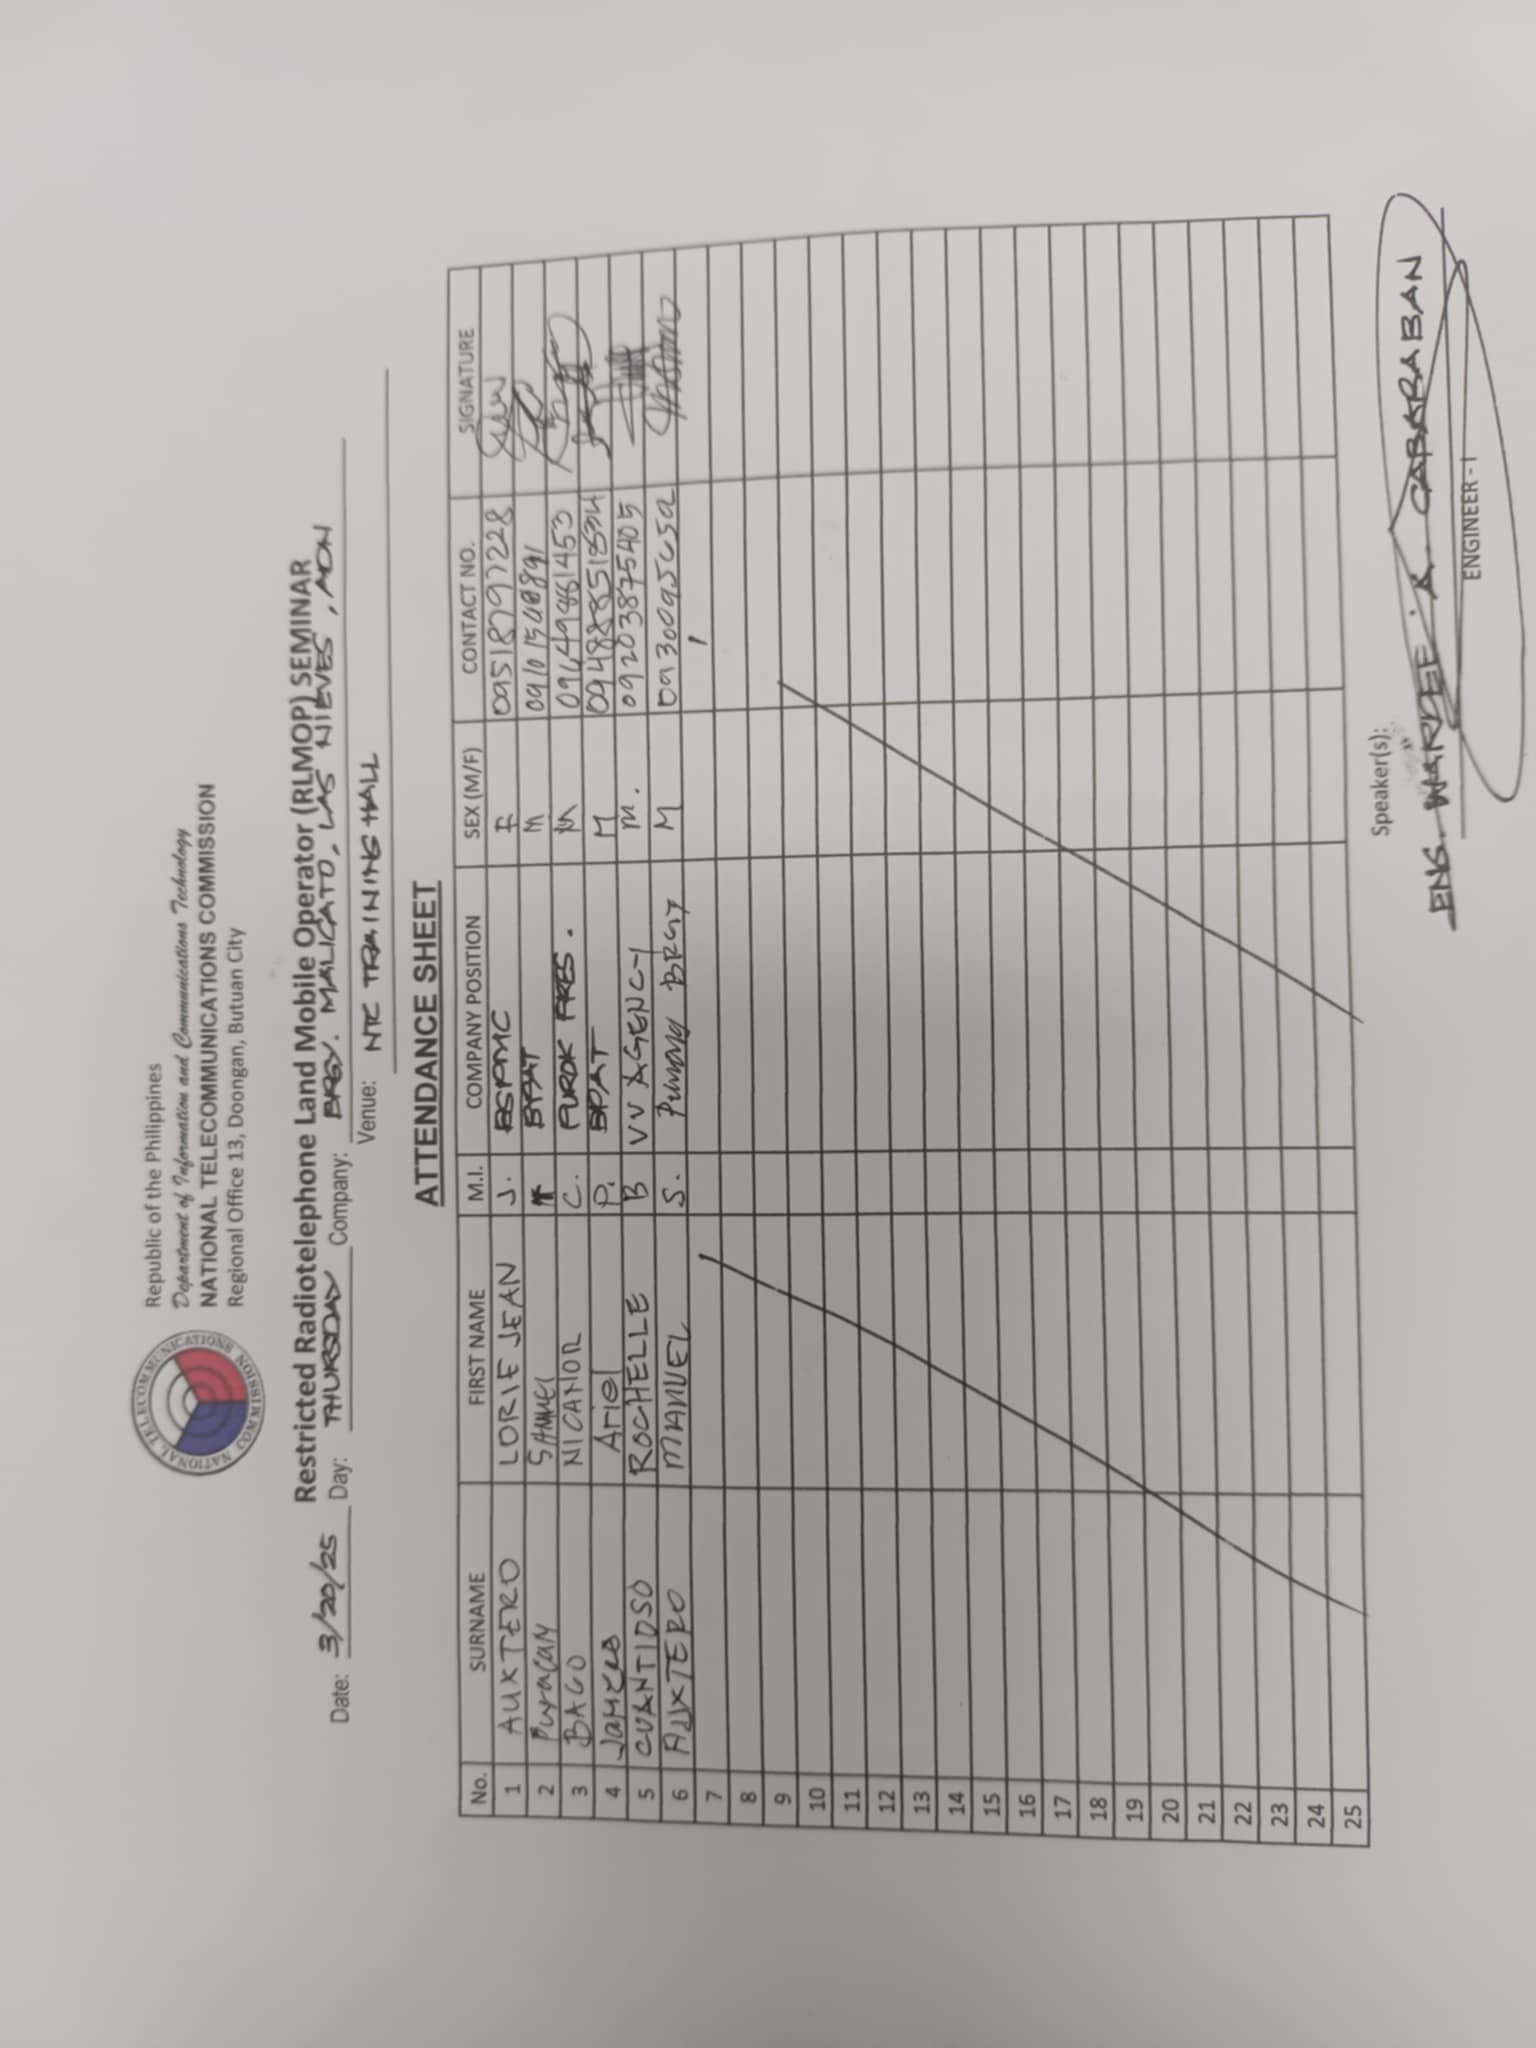 NATIONAL TELECOMMUNICATIONS COMMISSION
Republic of the Philippines
Department of Information and Communications Technology
NATIONAL TELECOMMUNICATIONS COMMISSION
Regional Office 13, Doongan, Butuan City
Restricted Radiotelephone Land Mobile Operator (RLMOP) SEMINAR
Date: 3/20/25 Day: THURSDAY Company: BRGY. MALICATO, LAS NIEVES, ADN
Venue: NTC TRAINING HALL
ATTENDANCE SHEET
No. SURNAME FIRST NAME M.I. COMPANY POSITION SEX (M/F) CONTACT NO. SIGNATURE
1 AUXTERO LORIE JEAN J. BSPMC F 09518797228
2 Puyacan SAMUEL BPAT M
3 BAGO NICANOR C. PUROK PRES. M
4 Ariel P. BPAT M
5 CUANTIOSO ROCHELLE B M. 09203875405
6 AUXTERO MANUEL S. BRGY M
7
8
9
10
11
12
13
14
15
16
17
18
19
20
21
22
23
24
25
Speaker(s):
ENG. A. CABARABAN
ENGINEER - I